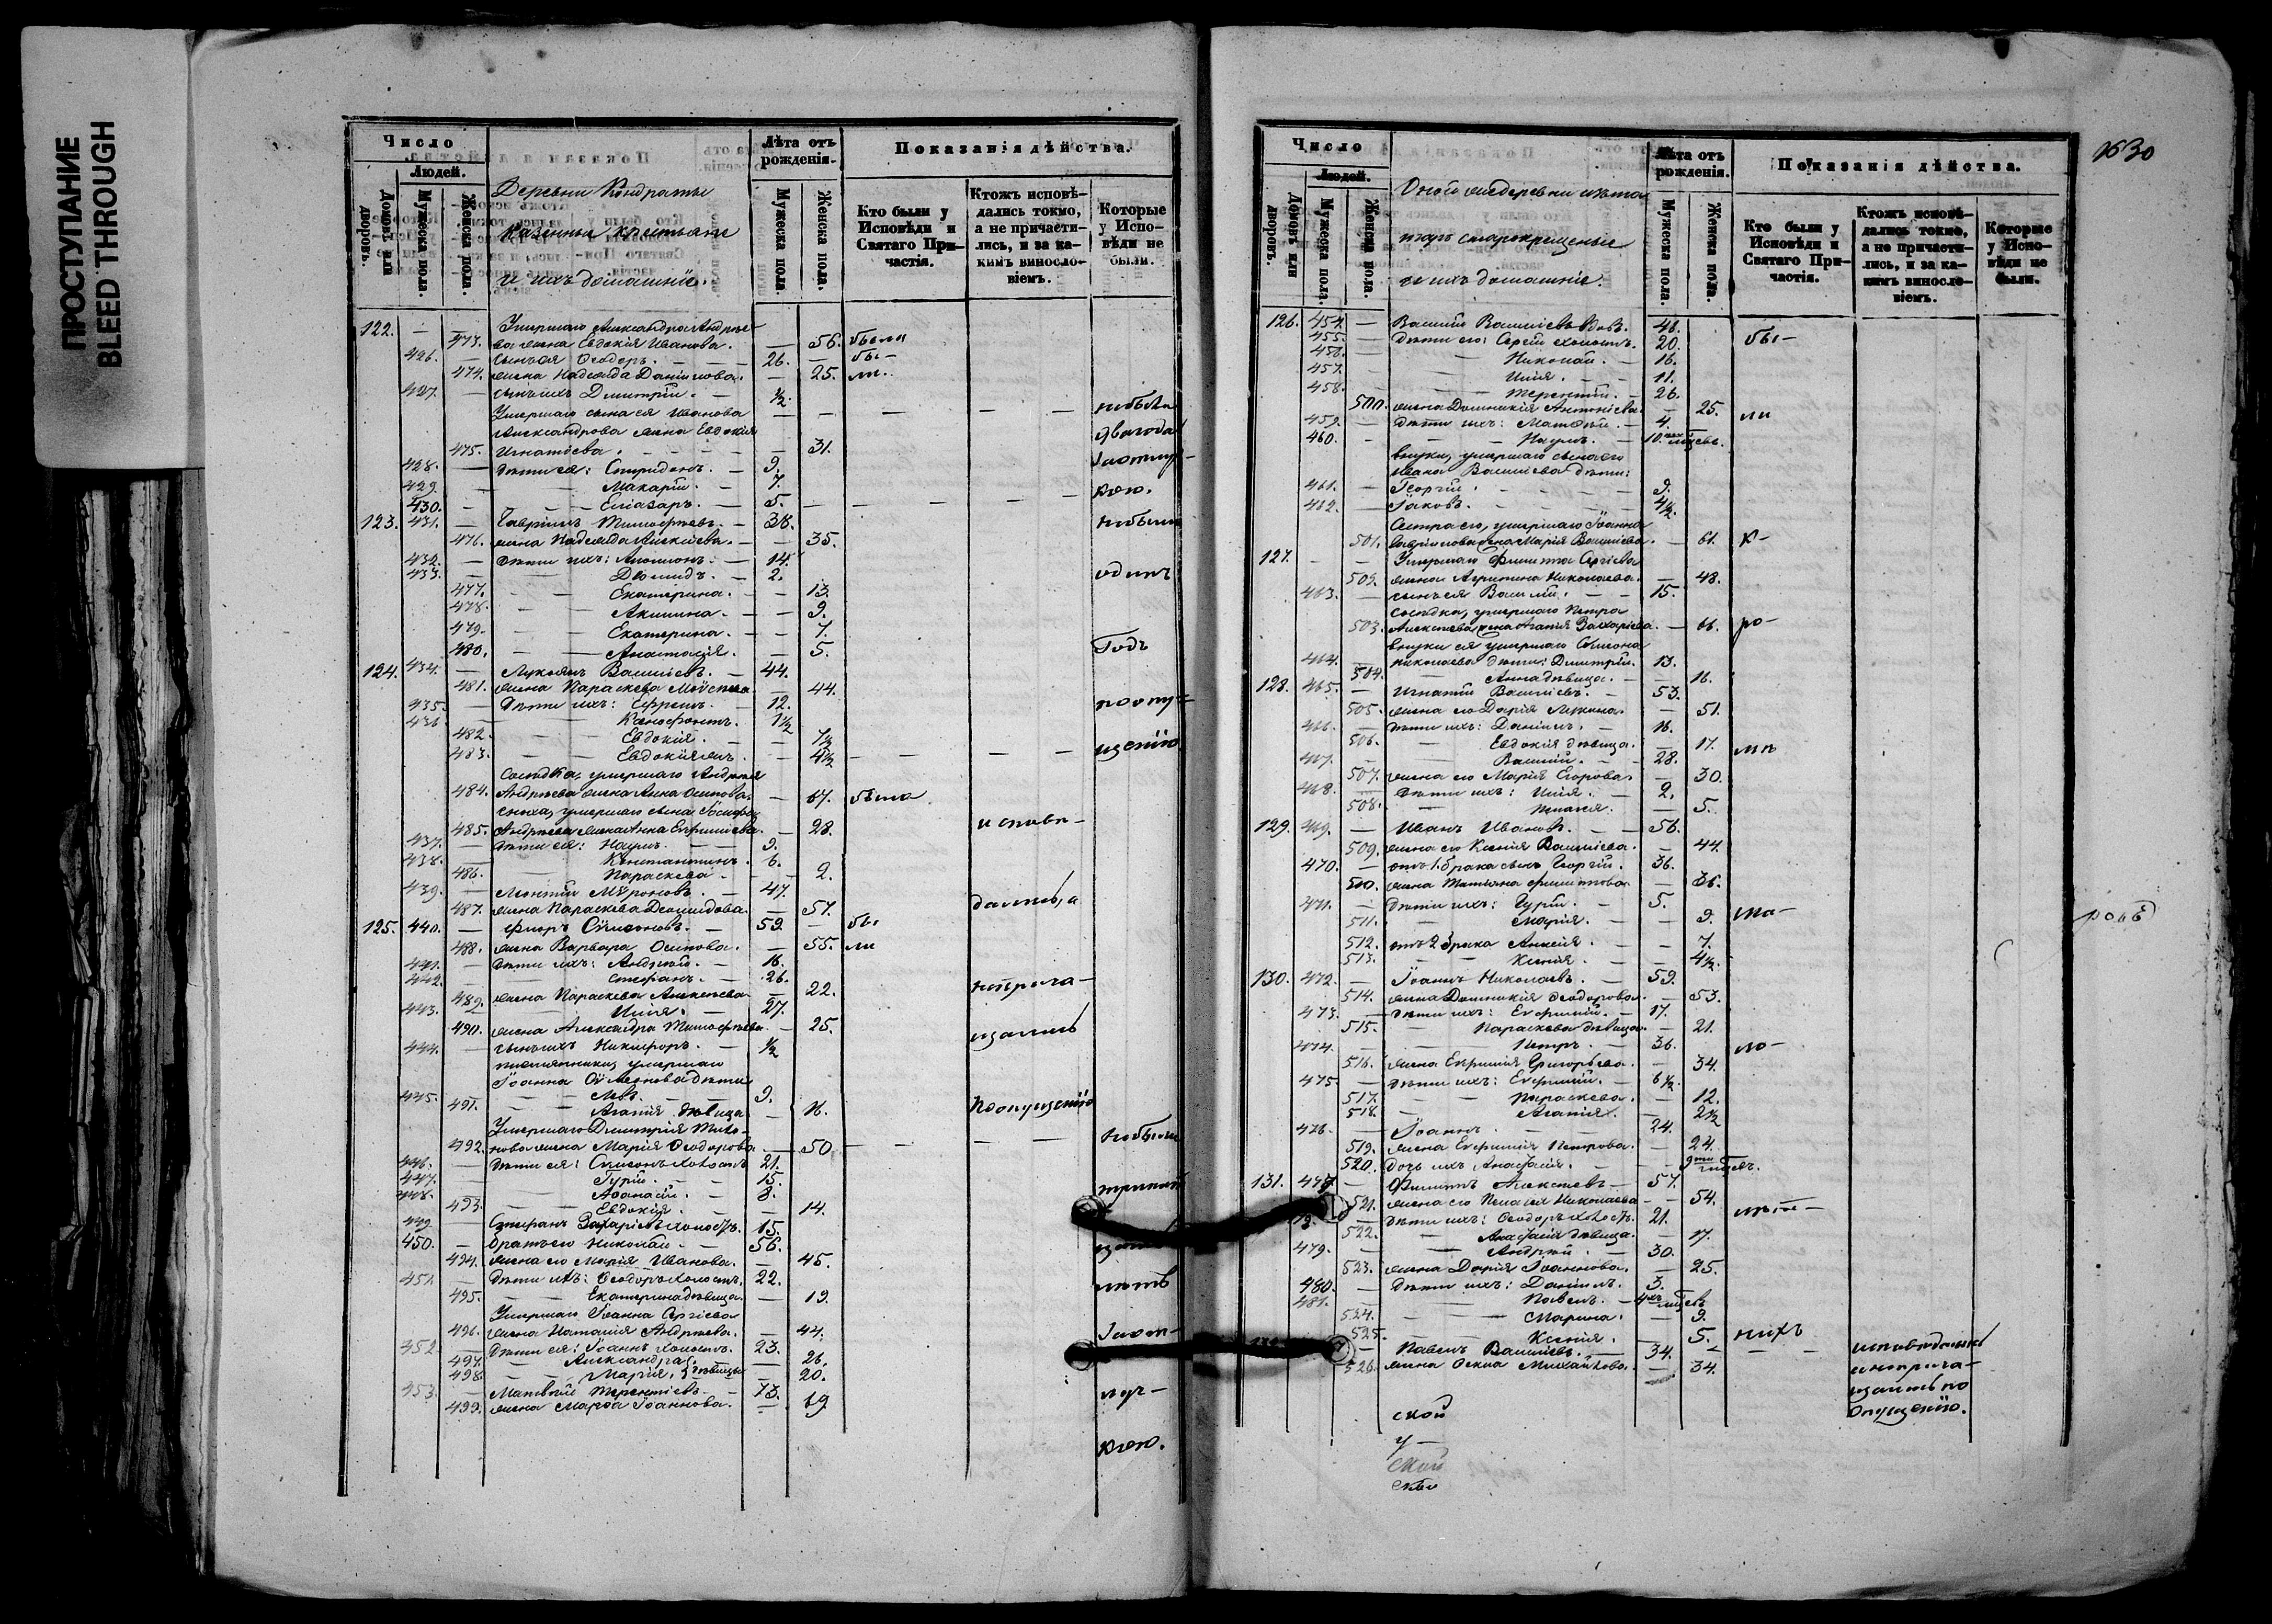 ПРОСТУПАНИЕ
BLEED THROUGH
Число
Людей.
Домовъ или дворовъ.
Мужеска пола.
Женска пола.
Деревни Кондратьи
казенные крестьяне
и ихъ домашніе.
Лѣта отъ рожденія.
Мужеска пола.
Женска пола.
Показанія дѣйства.
Кто были у Исповѣди и Святаго Причастія.
Ктожъ исповѣдались токмо, а не причастились, и за какимъ винословіемъ.
Которые у Исповѣди не были.
122. — Умершаго Александра Андрее-
473. ва жена Евдокія Иванова. — 56. была
426. — сынъ ея Ѳеодоръ. — 26. — бы-
474. жена Надежда Даніилова. — 25. ли.
427. — сынъ ихъ Димитрій. — ½
Умершаго сына ея Ивана небыла
Александрова жена Евдокія два года
475. Игнатіева. — 31.
428. — дѣти ея: Спиридонъ. — 9.
429. — Макарій. — 7.
430. — Еліазаръ. — 5.
123. 431. — Гавріилъ Тимофеевъ. — 38. небыли
476. жена Надежда Алексіева. — 35.
432. — Дѣти ихъ: — 14.
433. — Діомидъ. — 2. одинъ
477. — Екатерина. — 13.
478. — Акилина. — 9.
479. — Екатерина. — 7.
480. — Анастасія. — 5. Годъ
124. 434. — Лукіянъ Васильевъ. — 44.
481. жена Параскева Моѵсеева. — 44.
435. — Дѣти ихъ: Ефремъ. — 12. поопу-
436. — Ксенофонтъ. — 1½
482. — Евдокія. — 7½
483. — Евдокія — 4½ щенію
Сосѣдка, умершаго Андрея
484. Андреева жена Анна Осипова. — 67. была
сноха, умершаго сына Іосифа
485. Андреева жена Анна Евфиміева. — 28. исповѣ-
437. — Дѣти ея: Наумъ. — 9.
438. — Константинъ. — 6.
486. — Параскева. — 2.
439. — Леонтій Мѵроновъ. — 47.
487. жена Параскева Деомидова. — 51. дались, а
125. 440. — Флоръ Сѵмеоновъ. — 59. — бы
488. жена Варвара Осипова. — 55. ли
441. — Дѣти ихъ: Андрей. — 16.
442. — Стефанъ. — 26.
489. жена Параскева Алексеева — 22. непріча-
443. — Илія. — 27.
490. жена Александра Тимофеева. — 25. щались
444. — сынъ ихъ Никифоръ. — ½
племянники, умершаго
Іоанна Сѵмеонова дѣти
445. — Левъ. — 9.
491. — Агапія дѣвица — 16. поопущенію
Умершаго Димитрія Тихо-
492. нова жена Марія Ѳеодорова. — 50 небыли
446. — Дѣти ея: Симеонъ холостъ 21.
447. — Гурій. — 15.
448. — Аѳанасій. — 8.
493. — Евдокія. — 14.
449. Стефанъ Захаріевъ холостъ. 15.
450. — братъ его Николай. — 56.
494. жена его Марія Иванова. — 45.
451. — Дѣти ихъ: Ѳеодоръ холостъ. 22. лѣтъ
495. — Екатерина дѣвица. — 19.
Умершаго Іоанна Сергіева
496. жена Наталія Андреева. — 44.
352 — Дѣти ея: Іоаннъ холостъ. 23.
497. — Александра — 26.
498. — Марія, дѣвицы — 20.
453. — Матвѣй Терентіевъ. — 73. луч-
499. жена Марѳа Іоаннова. — 69
1630
Число
Людей.
Домовъ или дворовъ.
Мужеска пола.
Женска пола.
Оной жедеревни изъта
таръ старокрещеные
и ихъ домашніе.
Лѣта отъ рожденія.
Мужеска пола.
Женска пола.
Показанія дѣйства.
Кто были у Исповѣди и Святаго Причастія.
Ктожъ исповѣдались токмо, а не причастились, и за какимъ винословіемъ.
Которые у Исповѣди не были.
126. 454. — Василій Васильевъ вдовъ. 46.
455. — Дѣти его: Сергій холостъ. 20. бы-
456. — Николай. — 16.
457. — Илія. — 11.
458. — Терентій. — 26.
500. жена Домникія Антоніева. — 25.
459. — Дѣти ихъ: Матѳей. — 4. ли
460. — Наумъ. — 10.
внуки, умершаго сына его
Ивана Васильева дѣти:
461. — Георгій. — 9.
462. — Іаковъ. — 4½
Сестра его, умершаго Іоанна
501. Гавріилова жена Марія Васильева. — 61. к-
127. — Умершаго Филиппа Сергіева
502. жена Агрипина Николаева. — 48.
463. — сынъ ея Василій. — 15.
сосѣдка, умершаго Петра
503. Алексеева жена Агапія Захаріева. — 66. ро-
внуки ея умершаго Симеона
464. — Николаева дѣти: Димитрій. 13.
504. — Анна дѣвица. — 16.
128. 465. — Игнатій Васильевъ. — 53.
505. жена его Дарія Лукина. — 51.
466. — Дѣти ихъ: Даніилъ. — 16.
506. — Евдокія дѣвица. — 17.
467. — Василій. — 28.
507. жена его Марія Егорова. — 30.
468. — Дѣти ихъ: Илія. — 2.
508. — 5.
129. 469. — Иванъ Ивановъ. — 56.
509. жена его Ксенія Васильева. — 44.
470. — отъ 1. брака сынъ Георгій. 36.
510. жена Татьяна Филиппова — 36.
471. — Дѣти ихъ: Гурій. — 5.
511. — Марія. — 9. та-
512. отъ 2 брака — 7.
513. — Ксенія. — 4½.
130. 472. — Іоаннъ Николаевъ. — 59.
514. жена Домникія Ѳеодорова. — 53.
473. — Дѣти ихъ: Евфимій. — 17.
515. — Параскева дѣвица — 21.
474. — Петръ. — 36. ло-
516. жена Евфимія Григорьева. — 34.
475 — Дѣти ихъ: Евфимій. — 6½.
517. — Параскева. — 12.
518. — Агапія. — 2½
476. — Іоаннъ. — 24.
519. жена Евфимія Петрова. — 24.
520. дочь ихъ Анастасія. —
131. 477 — Филиппъ Алексеевъ — 57.
521. жена его Пелагія Николаева — 54.
— Дѣти ихъ: Ѳеодоръ холостъ. 21.
522. — Анастасія дѣвица. — 17.
479. — Андрей. — 30.
523. жена Дарія Іоаннова. — 25.
480. — Дѣти ихъ: Даніилъ. — 3.
481. — Павелъ. —
524. — Марина. — 9.
525. — Ксенія. — 5. нихъ
— Павелъ Васильевъ. — 34. исповѣдались
526. жена Михайлова. — 34. анепріча-
щались по
опущенію.
ской
у-